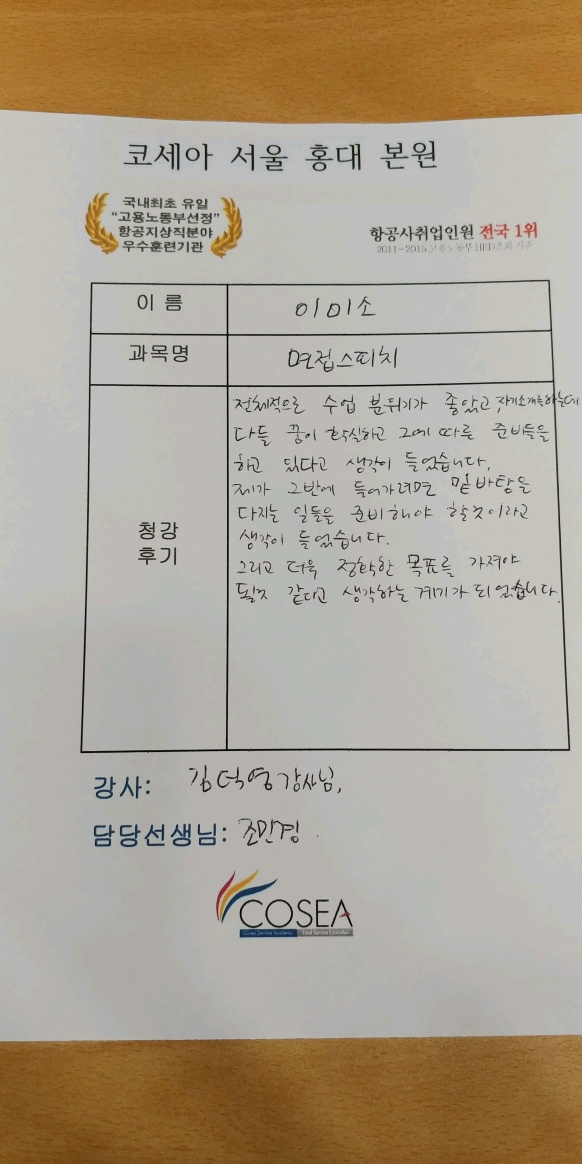 코세아 서울 홍대 본원
국내최초 유일
"고용노동부선정"
항공지상직분야
우수훈련기관
항공사취업인원 전국 1위
2011~2015 고용노동부 HRD조회 기준
이 름
이미소
과목명
면접스피치
청강
후기
전체적으로 수업 분위기가 좋았고, 자기소개를하는데
다들 꿈이 확실하고 그에 따른 준비들을
하고 있다고 생각이 들었습니다.
제가 그반에 들어가려면 밑바탕을
다지는 일들을 준비해야 할것이라고
생각이 들었습니다.
그리고 더욱 정확한 목표를 가져야
될것 같다고 생각하는 계기가 되었습니다.
강사: 김덕영강사님,
담당선생님: 조민경.
COSEA
Korea Service Academy Total Service Education